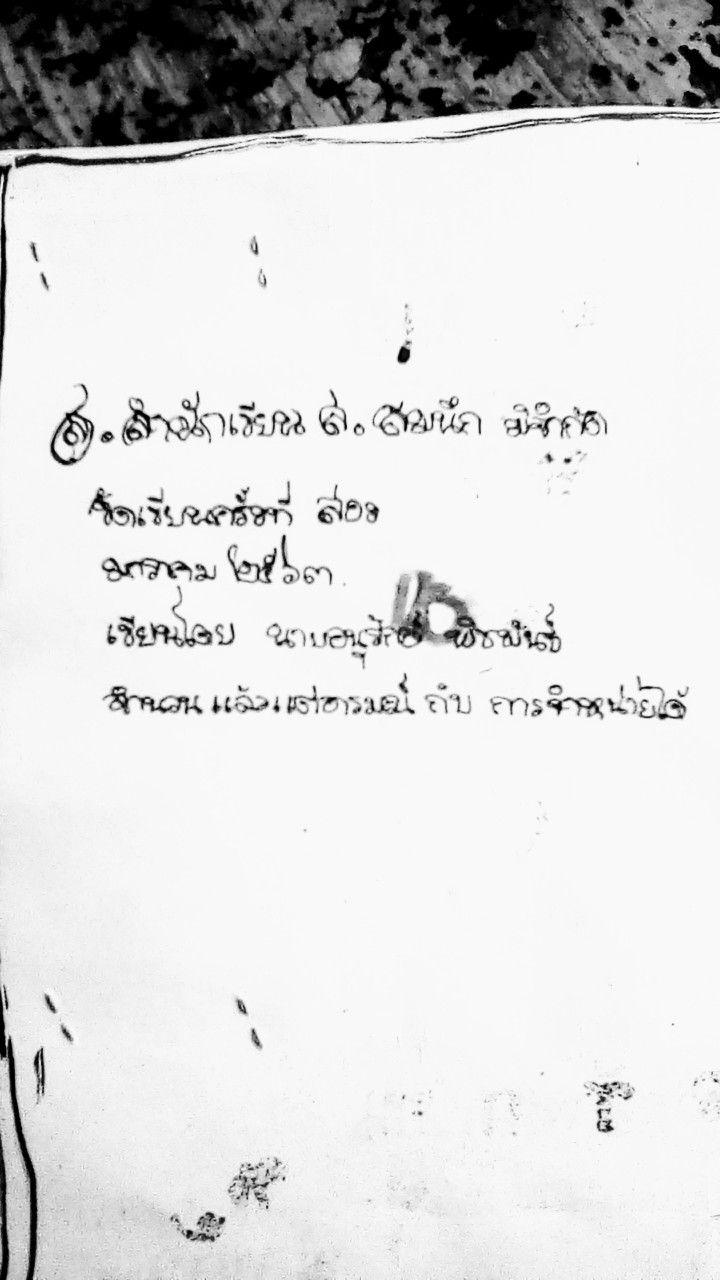 ส. สำนักเขียน ส. สมนึก มิจำกัด
จัดเขียนครั้งที่ สอง
มกราคม ๒๕๖๓.
เขียนโดย นายอนุรักษ์ พืชพันธ์
จำนวน แล้วแต่อารมณ์ กับ การจำหน่ายได้